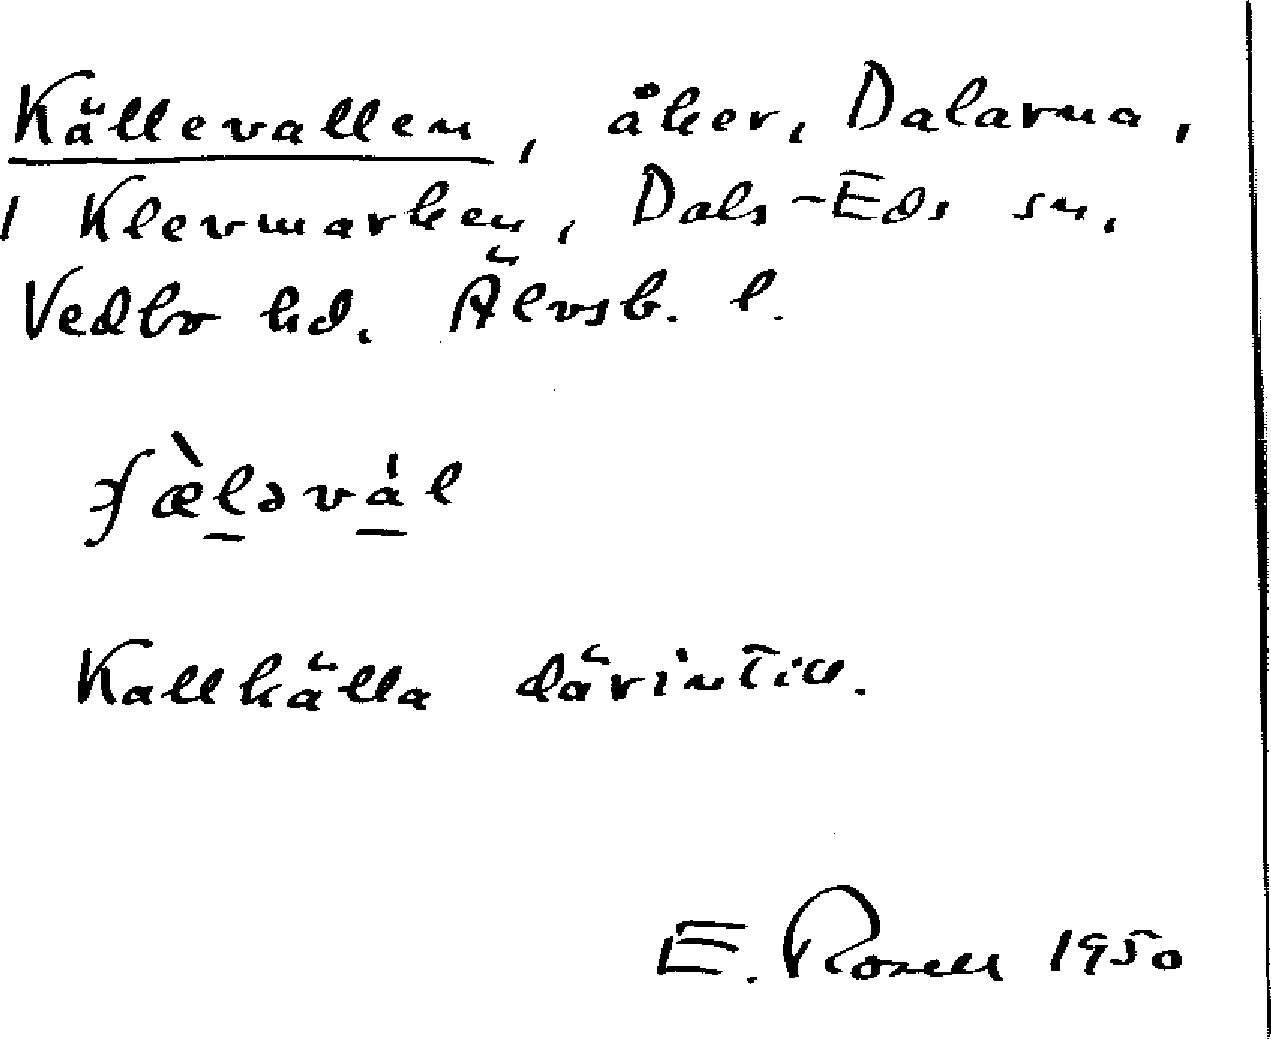 Källevallen, åker, Dalarna,
1 Klevmarken, Dals-Eds sn,
Vedbo hd. Älvsb. l.
Kallkälla därintill.
E. Rosell 1950